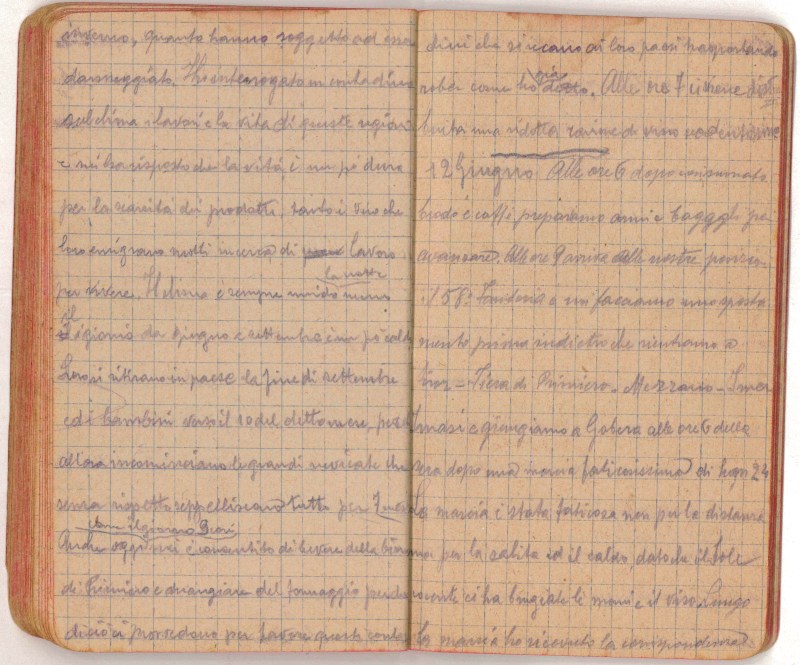 inverno, quanto hanno soggetto ad essere
danneggiato. Ho interrogato un contadino
sul clima, i lavori e la vita di queste regioni
e mi ha risposto che la vita, è un pò dura
per la scarsità dei prodotti, tanto è vero che
loro emigrano molti in cerca di lavoro
la notte
per vivere. Il clima è sempre umido
il
giorno da giugno a settembre è un pò caldo
Loro si ritirano in paese la fine di settembre
ed i bambini verso il 10 del detto mese, perchè
allora incominciano le grandi nevicate che
senza rispetto seppelliscono tutto per
come il giorno
Anche oggi è consentito di bevere della birra
di Primiero e mangiare del formaggio perchè
di ciò ci provvedono per favore questi conta
dini che si recano ai loro paesi trasportando
già
roba come ho detto. Alle ore 7 ci viene distri
buita una ridotta razione di vino
12 Giugno. Alle ore 6 dopo consumato
brodo e caffè prepariamo armi e bagagli per
avanzare. Alle ore 9 arriva alle nostre posizio
ni 158° Fanteria e noi facciamo uno sposta
mento prima indietro che rientriamo a
Fiera di Primiero - Mezzano - Imer
masi e giungiamo a Gobera alle ore 6 della
sera dopo una marcia faticosissima di kgm 24
La marcia è stata faticosa non per la distanza
ma per la salita ed il caldo, dato che il Sole
cocente ci ha bruciate le mani e il viso. Lungo
la marcia ho ricevuto la corrispondenza